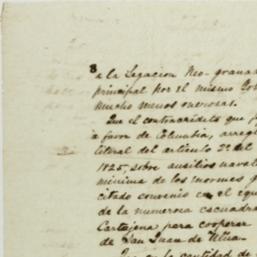 8
a la Legacion Neo-grana
principal por el mismo Go
mucho menos onerosas.
Que el contracrédito que
a favor de Colombia, arreg
literal del artículo 2º del
1825, sobre ausilios naval
minima de los enormes g
citado convenio en el equi
de la numerosa escuadra
Cartajena para cooperar
de San Juan de Ulua.
Que la cantidad de